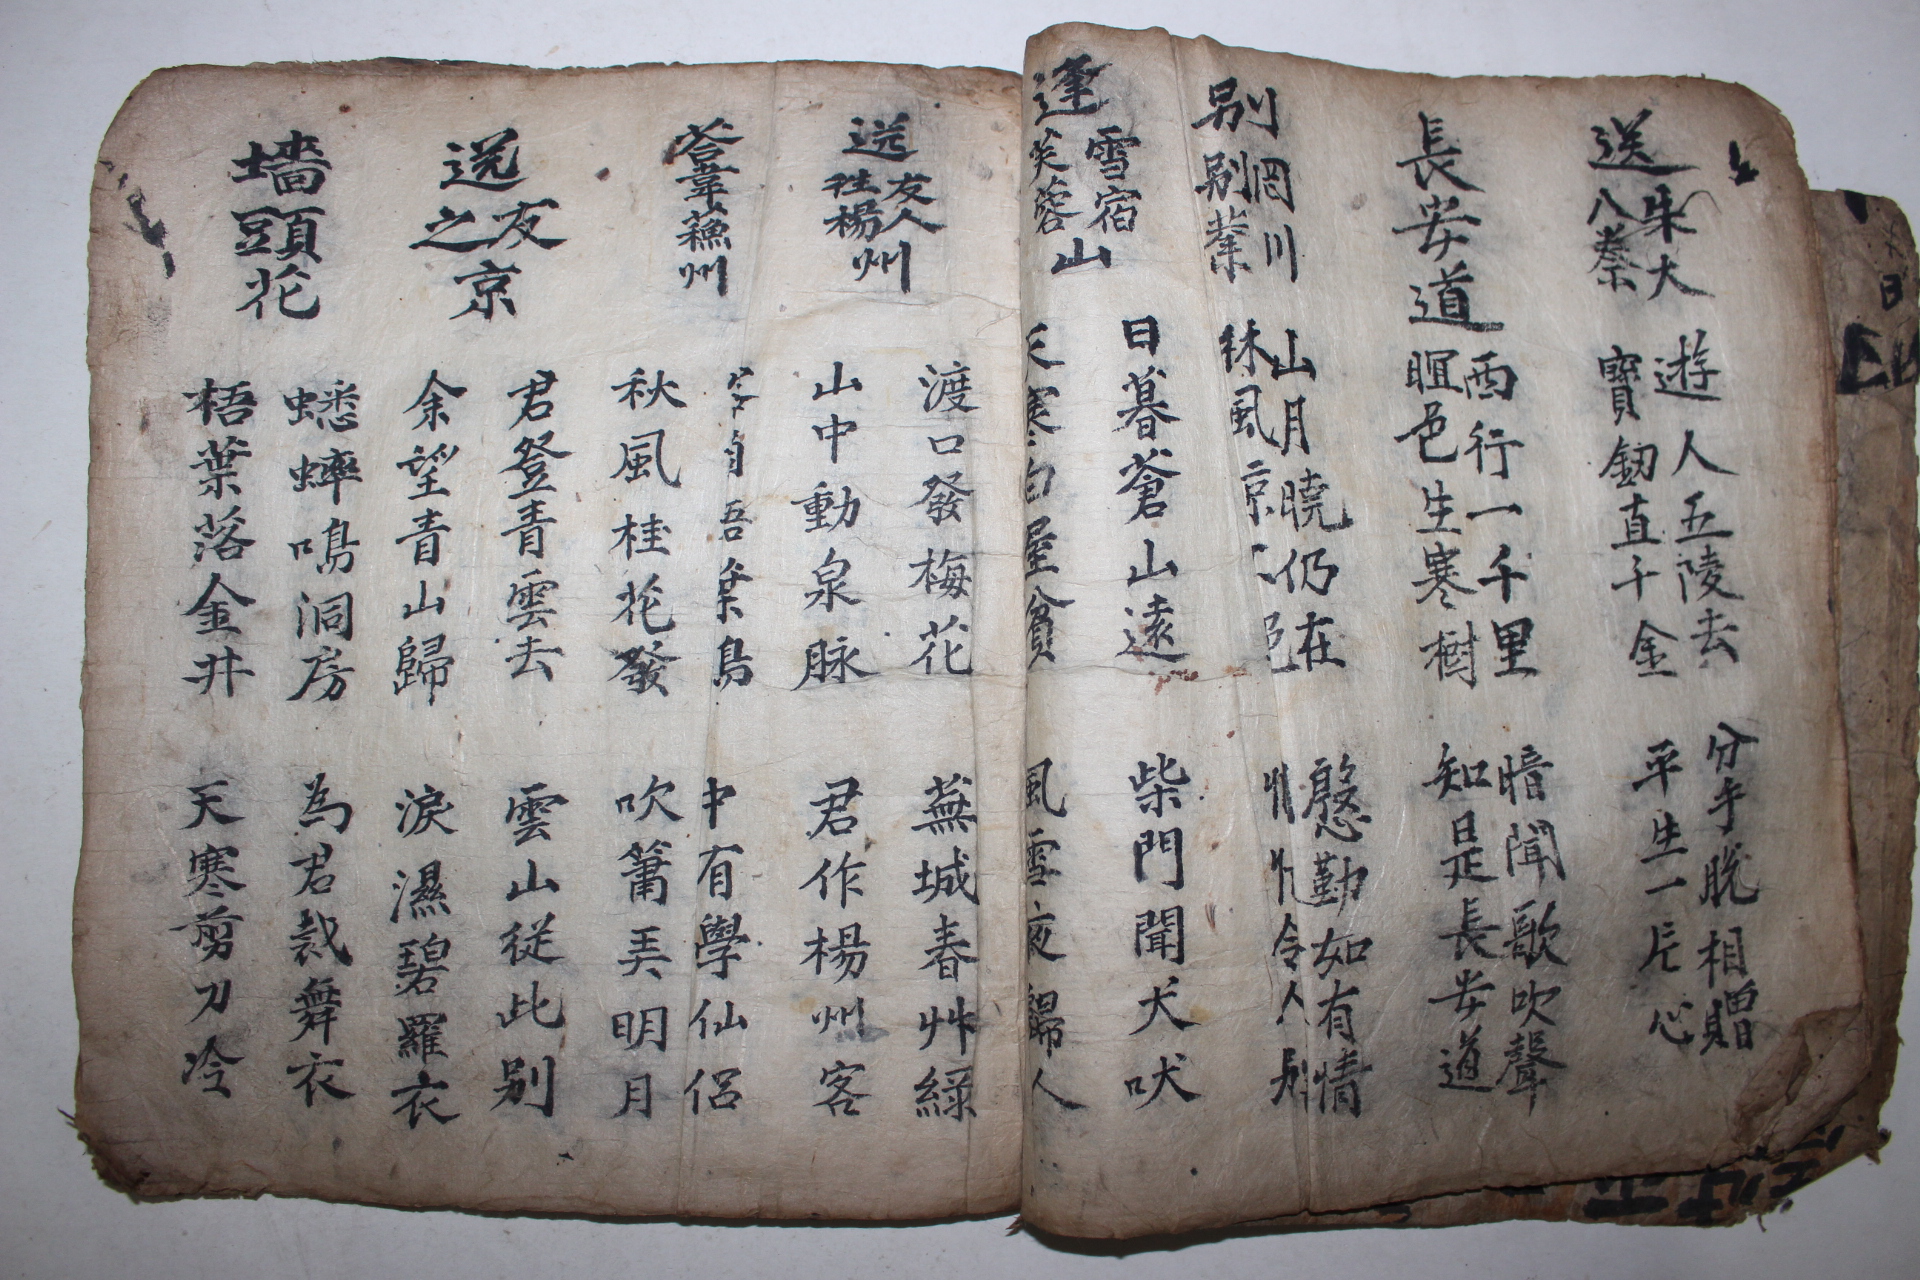 送朱大
入秦
遊人五陵去
分手脫相贈
寶釰直千金
平生一片心
長安道
西行一千里
暗聞歌吹聲
暄色生寒樹
知是長安道
別罔川
別業
山月曉仍在
慇勤如有情
林風凉
令人別
逢雪宿
芙蓉山
日暮蒼山遠
柴門聞犬吠
天寒白屋貧
風雪夜歸人
送友人
徃楊州
渡口發梅花
蕪城春艸綠
山中動泉脉
君作楊州客
荅韋蘓州
鳥
中有學仙侶
秋風桂花發
吹簫弄明月
送友
之京
君登青雲去
雲山從此別
余望青山歸
淚濕碧羅衣
墻頭花
蟋蟀鳴洞房
為君裁舞衣
梧葉落金井
天寒剪刀冷